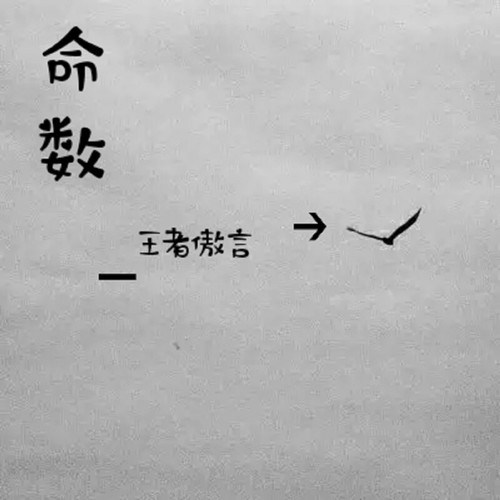 命数
王者傲言